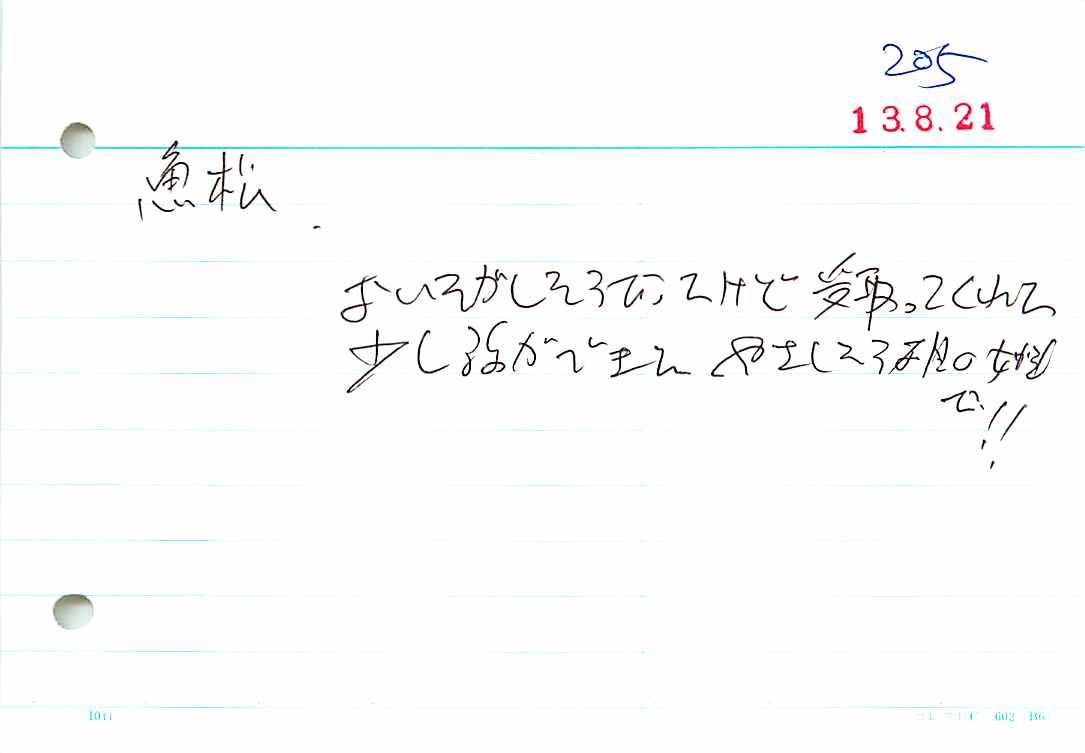 205
13.8.21
魚松
おいそがしそうでしたけど受取ってくれて
少し話ができました やさしそうな の女性
で!!
602 B6